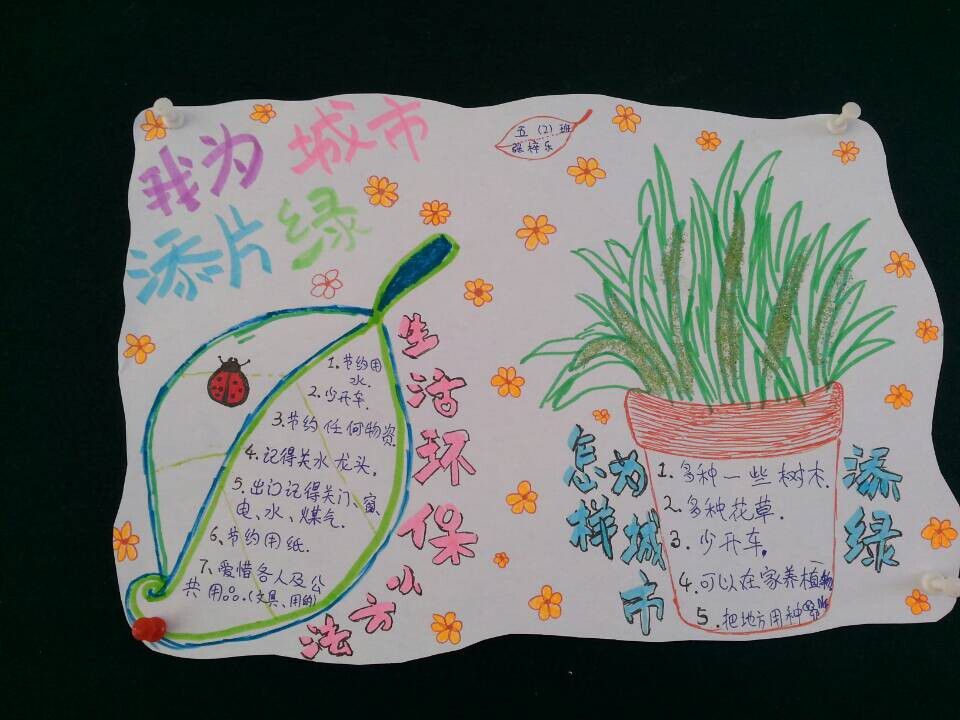 我为城市
添片绿
五(2)班
张梓乐
生活环保小方法
1.节约用
水.
2.少开车.
3.节约任何物资
4.记得关水龙头.
5.出门记得关门、窗、
电、水、煤气.
6.节约用纸.
7.爱惜各人及公
共用品.(文具、用的)
怎样为城市添绿
1.多种一些树木.
2.多种花草.
3.少开车.
4.可以在家养植物
5.把地方用种